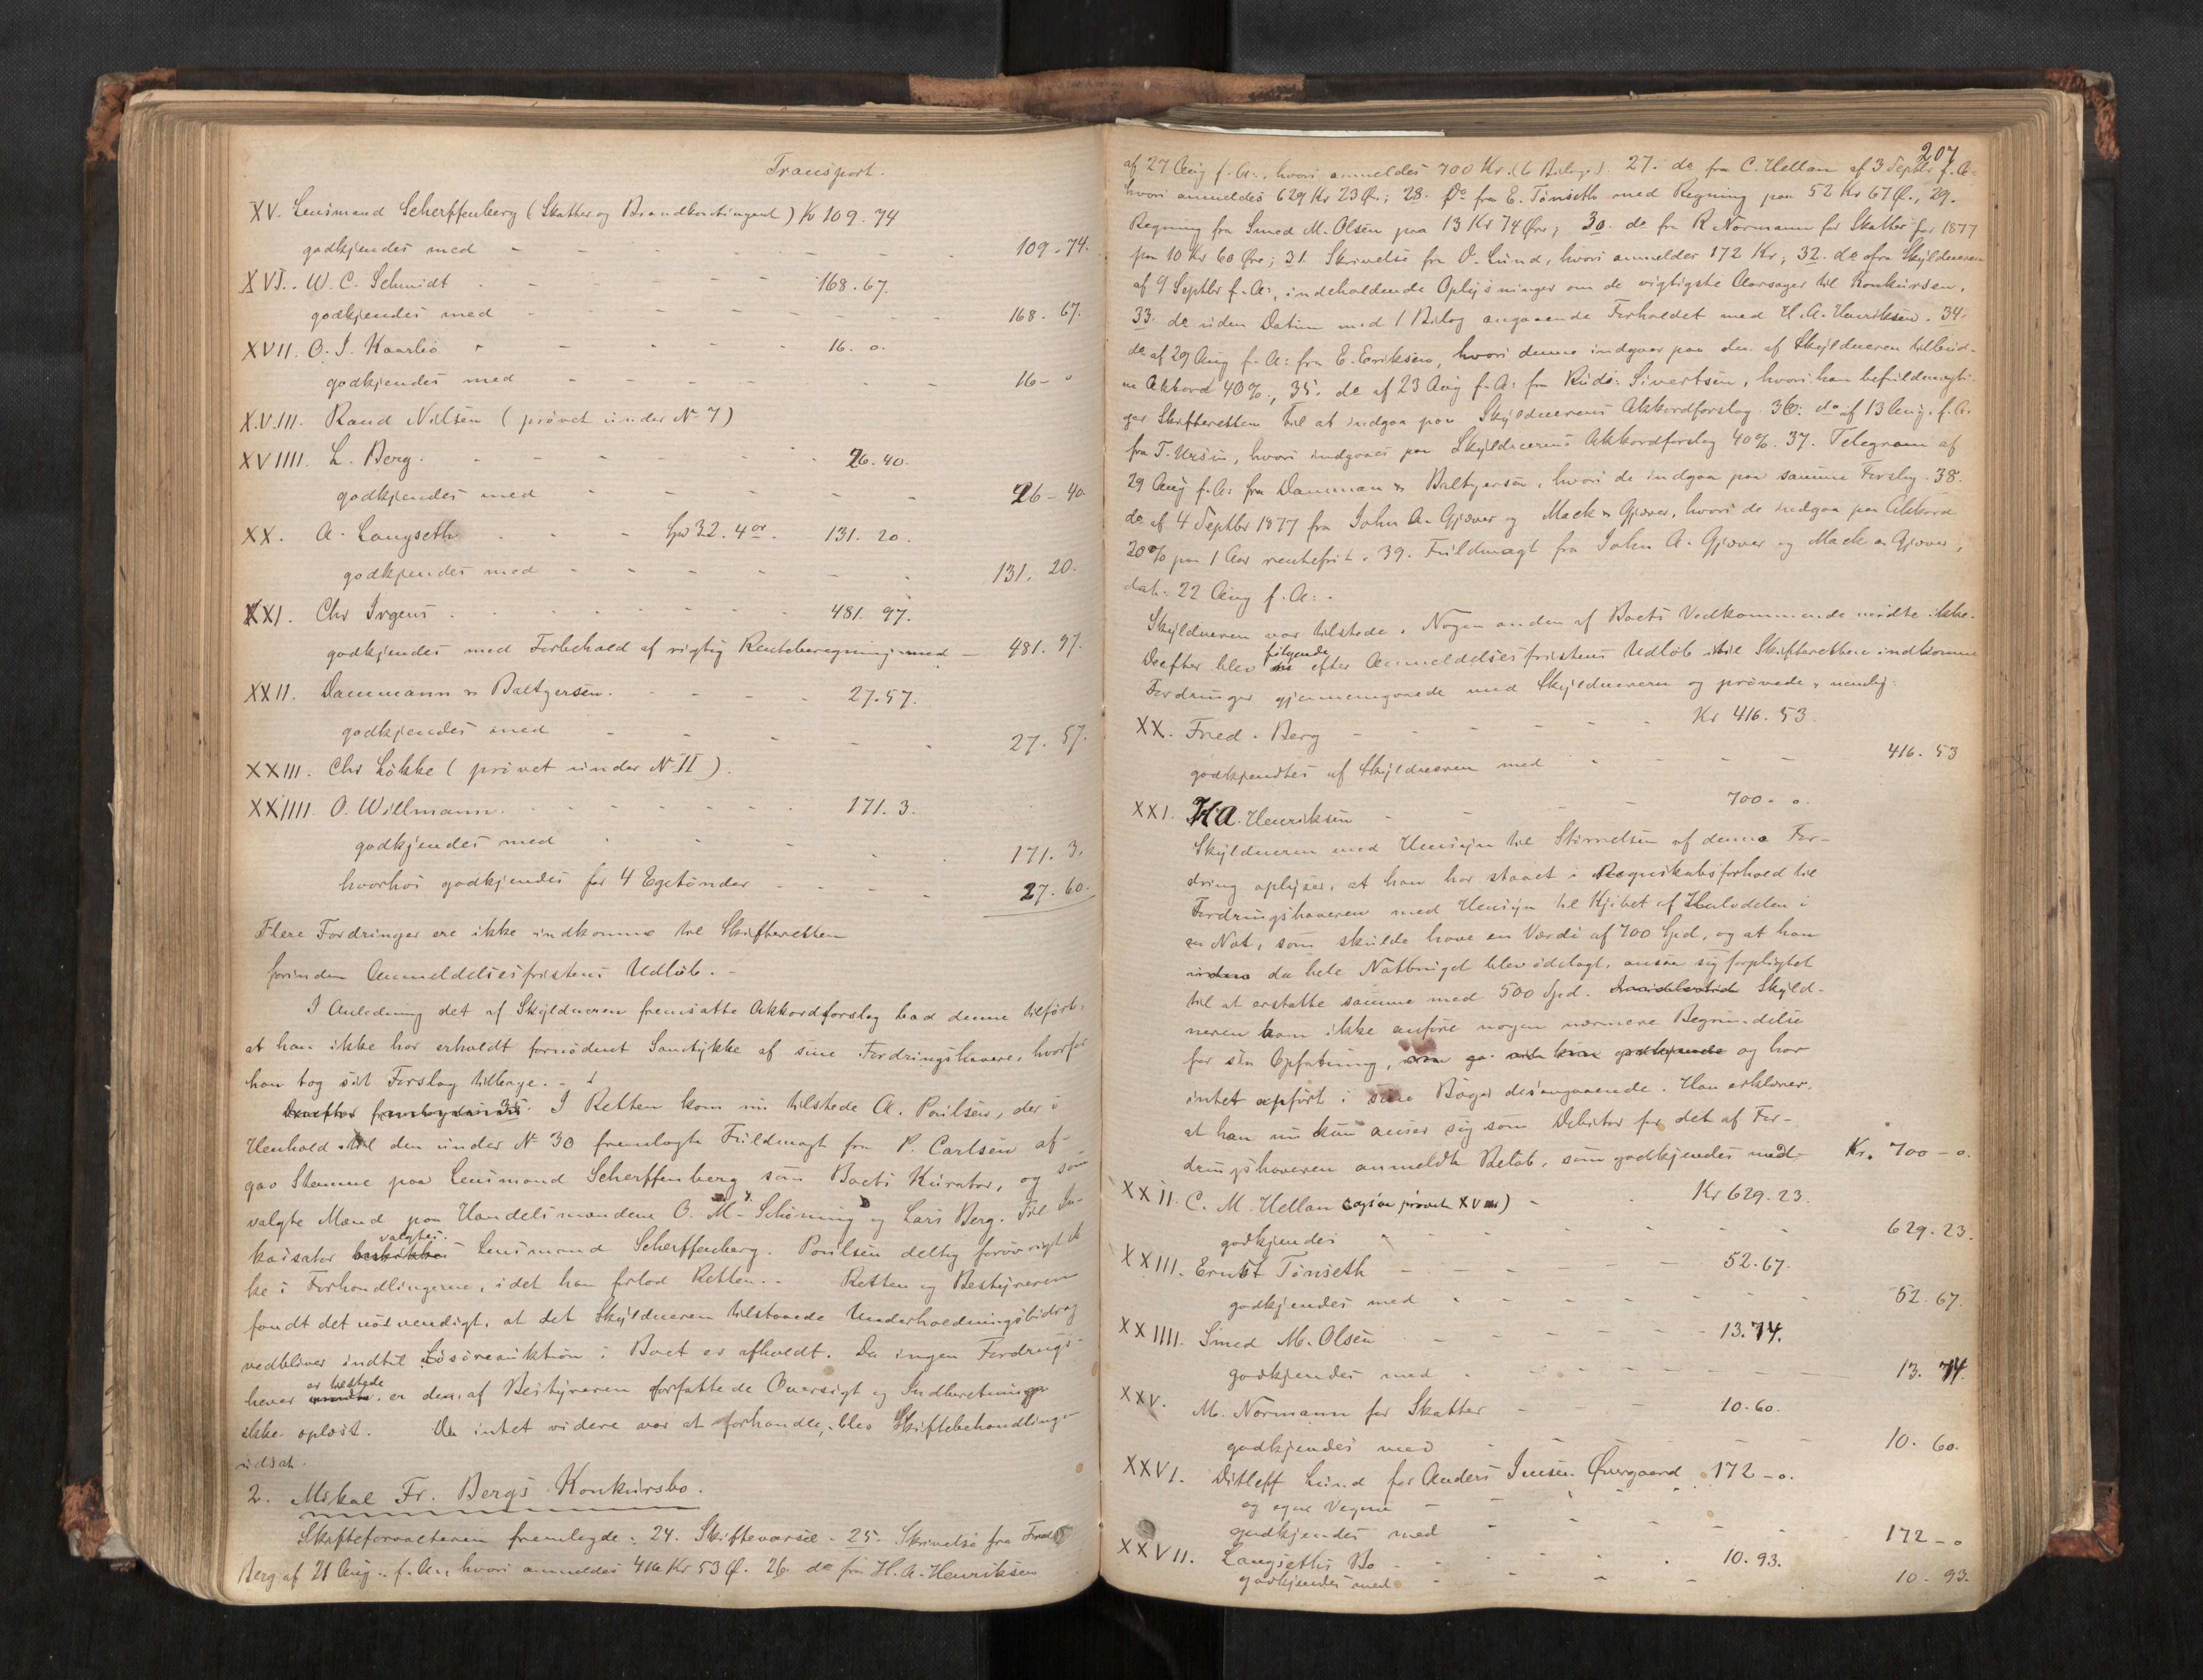 Transport.
XV. Lensmand Scherffenberg (Skatter og Brandkontingent) Kr 109.74
godkjendes med - - - - 109.74.
XVI. W. C. Schmidt - - - 168.67.
godkjendes med - - - - 168.67.
XVII. O. J. Kaarbö - - - 16. o.
godkjendes med - - - - 16 - o
XVIII. Rand Nilsen (prövet under No 7)
XVIIII. L. Berg. - - - 26.40.
godkjendes med - - - - 26-40.
XX. A. Langseth - - Spd 32. 4 or. 131. 20.
godkjendes med - - - - 131. 20.
XXI. Chr Irgens - - - 481. 97.
godkjendes med Forbehold af rigtig Renteberegning med - 481. 97.
XXII. Dammann & Baltzersen. - - - 27.57.
godkjendes med - - - - 27. 57.
XXIII. Chr Lökke (prövet under No II).
XXIIII. O. Willmann. - - - 171. 3.
godkjendes med - - - - 171. 3.
hvorhos godkjendes for 4 Egetönder - - - 27. 60.
Flere Fordringer ere ikke indkomne til Skifteretten
forinden Anmeldelsesfristens Udlöb. -
I Anledning det af Skyldneren fremsatte Akkordforslag bad denne tilfört,
at han ikke har erholdt fornödent Samtykke af sine Fordringshavere, hvorfor
han tog sit Forslag tilbage. -
I Retten kom nu tilstede A. Poulsen, der i
Henhold til den under No 30 fremlagte Fuldmagt fra P. Carlsen af-
gav Stemme paa Lensmand Scherffenberg som Boets Kurator, og som
valgte Mænd paa Handelsmændene O. M. Schöning og Lars Berg. Til In-
kassator valgtes Lensmand Scherffenberg. Poulsen deltog forövrigt ik
ke i Forhandlingerne, idet han forlod Retten. - Retten og Bestyreren
fandt det nödvendigt, at det Skyldneren tilstaaede Underholdningsbidrag
vedbliver indtil Lösöreauktion i Boet er afholdt. Da ingen Fordrings-
haver er tilstede er den af Bestyreren forfattede Oversigt og Indberetning
ikke oplæst. Da intet videre var at forhandle, blev Skiftebehandlingen
udsat.
2. Mikal Fr. Bergs Konkursbo.
Skifteforvalteren fremlagde: 24. Skiftevarsel - 25. Skrivelse fra Fredr
Berg af 21 Aug. f. A., hvori anmeldes 416 Kr 53 Ø. 26. do fra H. A. Henriksen
207
af 27 Aug f. A., hvori anmeldes 700 Kr. (6 Bilag). 27. do fra C. Hellan af 3 Septbr f. A.
hvori anmeldes 629 Kr 23 Ø.; 28. Do fra E. Tönseth med Regning paa 52 Kr 67 Ø., 29.
Regning fra Smed M. Olsen paa 13 Kr 74 Øre; 30. do fra R Normann for Skatter for 1877
paa 10 Kr 60 Øre; 31. Skrivelse fra D. Lund, hvori anmeldes 172 Kr; 32. do fra Skyldneren
af 9 Septbr f. A., indeholdende Oplysninger om de vigtigste Aarsager til Konkursen.
33. do uden Datum med 1 Bilag angaaende Forholdet med H. A. Henriksen. 34.
do af 29 Aug f. A: fra E. Eriksen, hvori denne indgaar paa den af Skyldneren tilbud-
ne Akkord 40%, 35. do af 23 Aug f. A: fra Sivertsen, hvori han befuldmægti
ger Skifteretten til at indgaa paa Skyldnerens Akkordforslag. 36. do af 13 Aug. f. A.
fra T. Ursin, hvori indgaaes paa Skyldnerens Akkordforslag 40%. 37. Telegram af
29 Aug f. A: fra Damman & Baltzersen, hvori de indgaa paa samme Forslag. 38.
do af 4 Septbr 1877 fra John A. Gjæver og Mack & Gjæver, hvori de indgaa paa Akkord
20% paa 1 Aar rentefrit. 39. Fuldmagt fra John A. Gjæver og Mack & Gjæver,
dat. 22 Aug f. A:.
Skyldneren var tilstede. Nogen anden af Boets Vedkommende mödte ikke.
Derefter blev følgende efter Anmeldelsesfristens Udlöb til Skifteretten indkomne
Fordringer gjennemgaaede med Skyldneren og prövede, nemlig:
XX. Fred. Berg - - - - Kr 416. 53.
godkjendtes af Skyldneren med - - - 416. 53
XXI. H.A. Henriksen - - - 700. o.
Skyldneren med Hensyn til Störrelsen af denne For-
dring oplyser, at han har staaet i Regnskabsforhold til
Fordringshaveren med Hensyn til Kjöbet af Halvdelen i
en Not, som skulde have en Værdi af 700 Spd, og at han
da hele Notbruget blev ödelagt, ansaa sig forpligtet
til at erstatte samme med 500 Spd. Skyld-
neren kan ikke anføre nogen nærmere Begrundelse
for sin Opfatning, og har
intet opfört i sine Böger desangaaende. Han erklærer,
at han nu kun anser sig som Debitor for det af For-
dringshaveren anmeldte Belöb, som godkjendes med - Kr. 700 - o.
XXII. C. M. Hellan (ogsaa prövet XVIII) - - Kr 629. 23.
godkjendes - - - - 629. 23.
XXIII. Ernst Tönseth - - - 52.67.
godkjendes med - - - - 52. 67.
XXIIII. Smed M. Olsen - - - 13.74.
godkjendes med - - - - 13. 74.
XXV. M. Normann for Skatter - - - 10.60.
godkjendes med - - - - 10. 60.
XXVI. Ditleff Lund for Anders Jensen Øvergaard 172 - o.
og egne Vegne - - -
godkjendes med - - - - 172 - o
XXVII. Langseths Bo - - - 10.93.
godkjendes med - - - - 10 - 93.